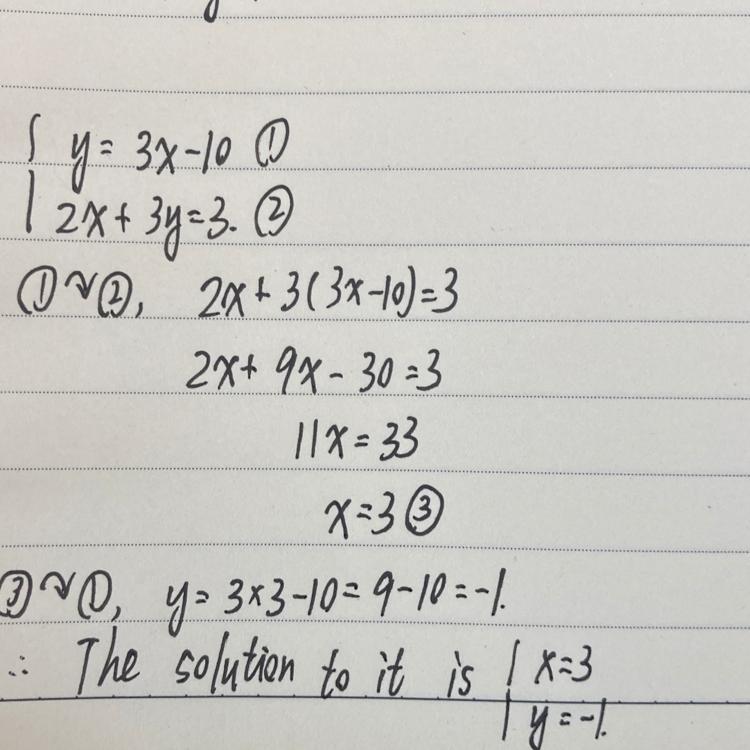 { y = 3x - 10 ①
2x + 3y = 3. ②
① ↷ ②, 2x + 3(3x - 10) = 3
2x + 9x - 30 = 3
11x = 33
x = 3 ③
③ ↷ ①, y = 3 × 3 - 10 = 9 - 10 = -1.
∴ The solution to it is { x = 3
y = -1.